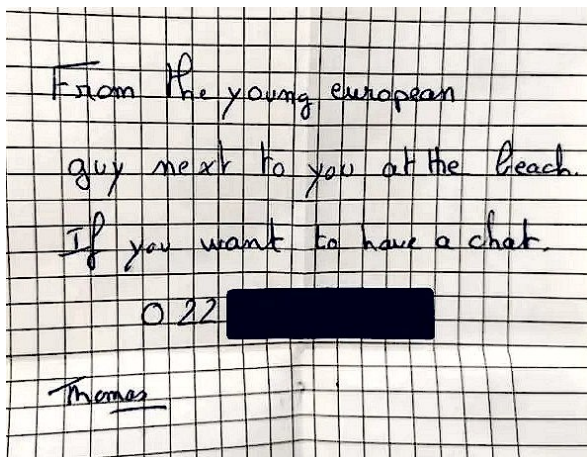 From the young european
guy next to you at the beach.
If you want to have a chat.
0 22
Thomas